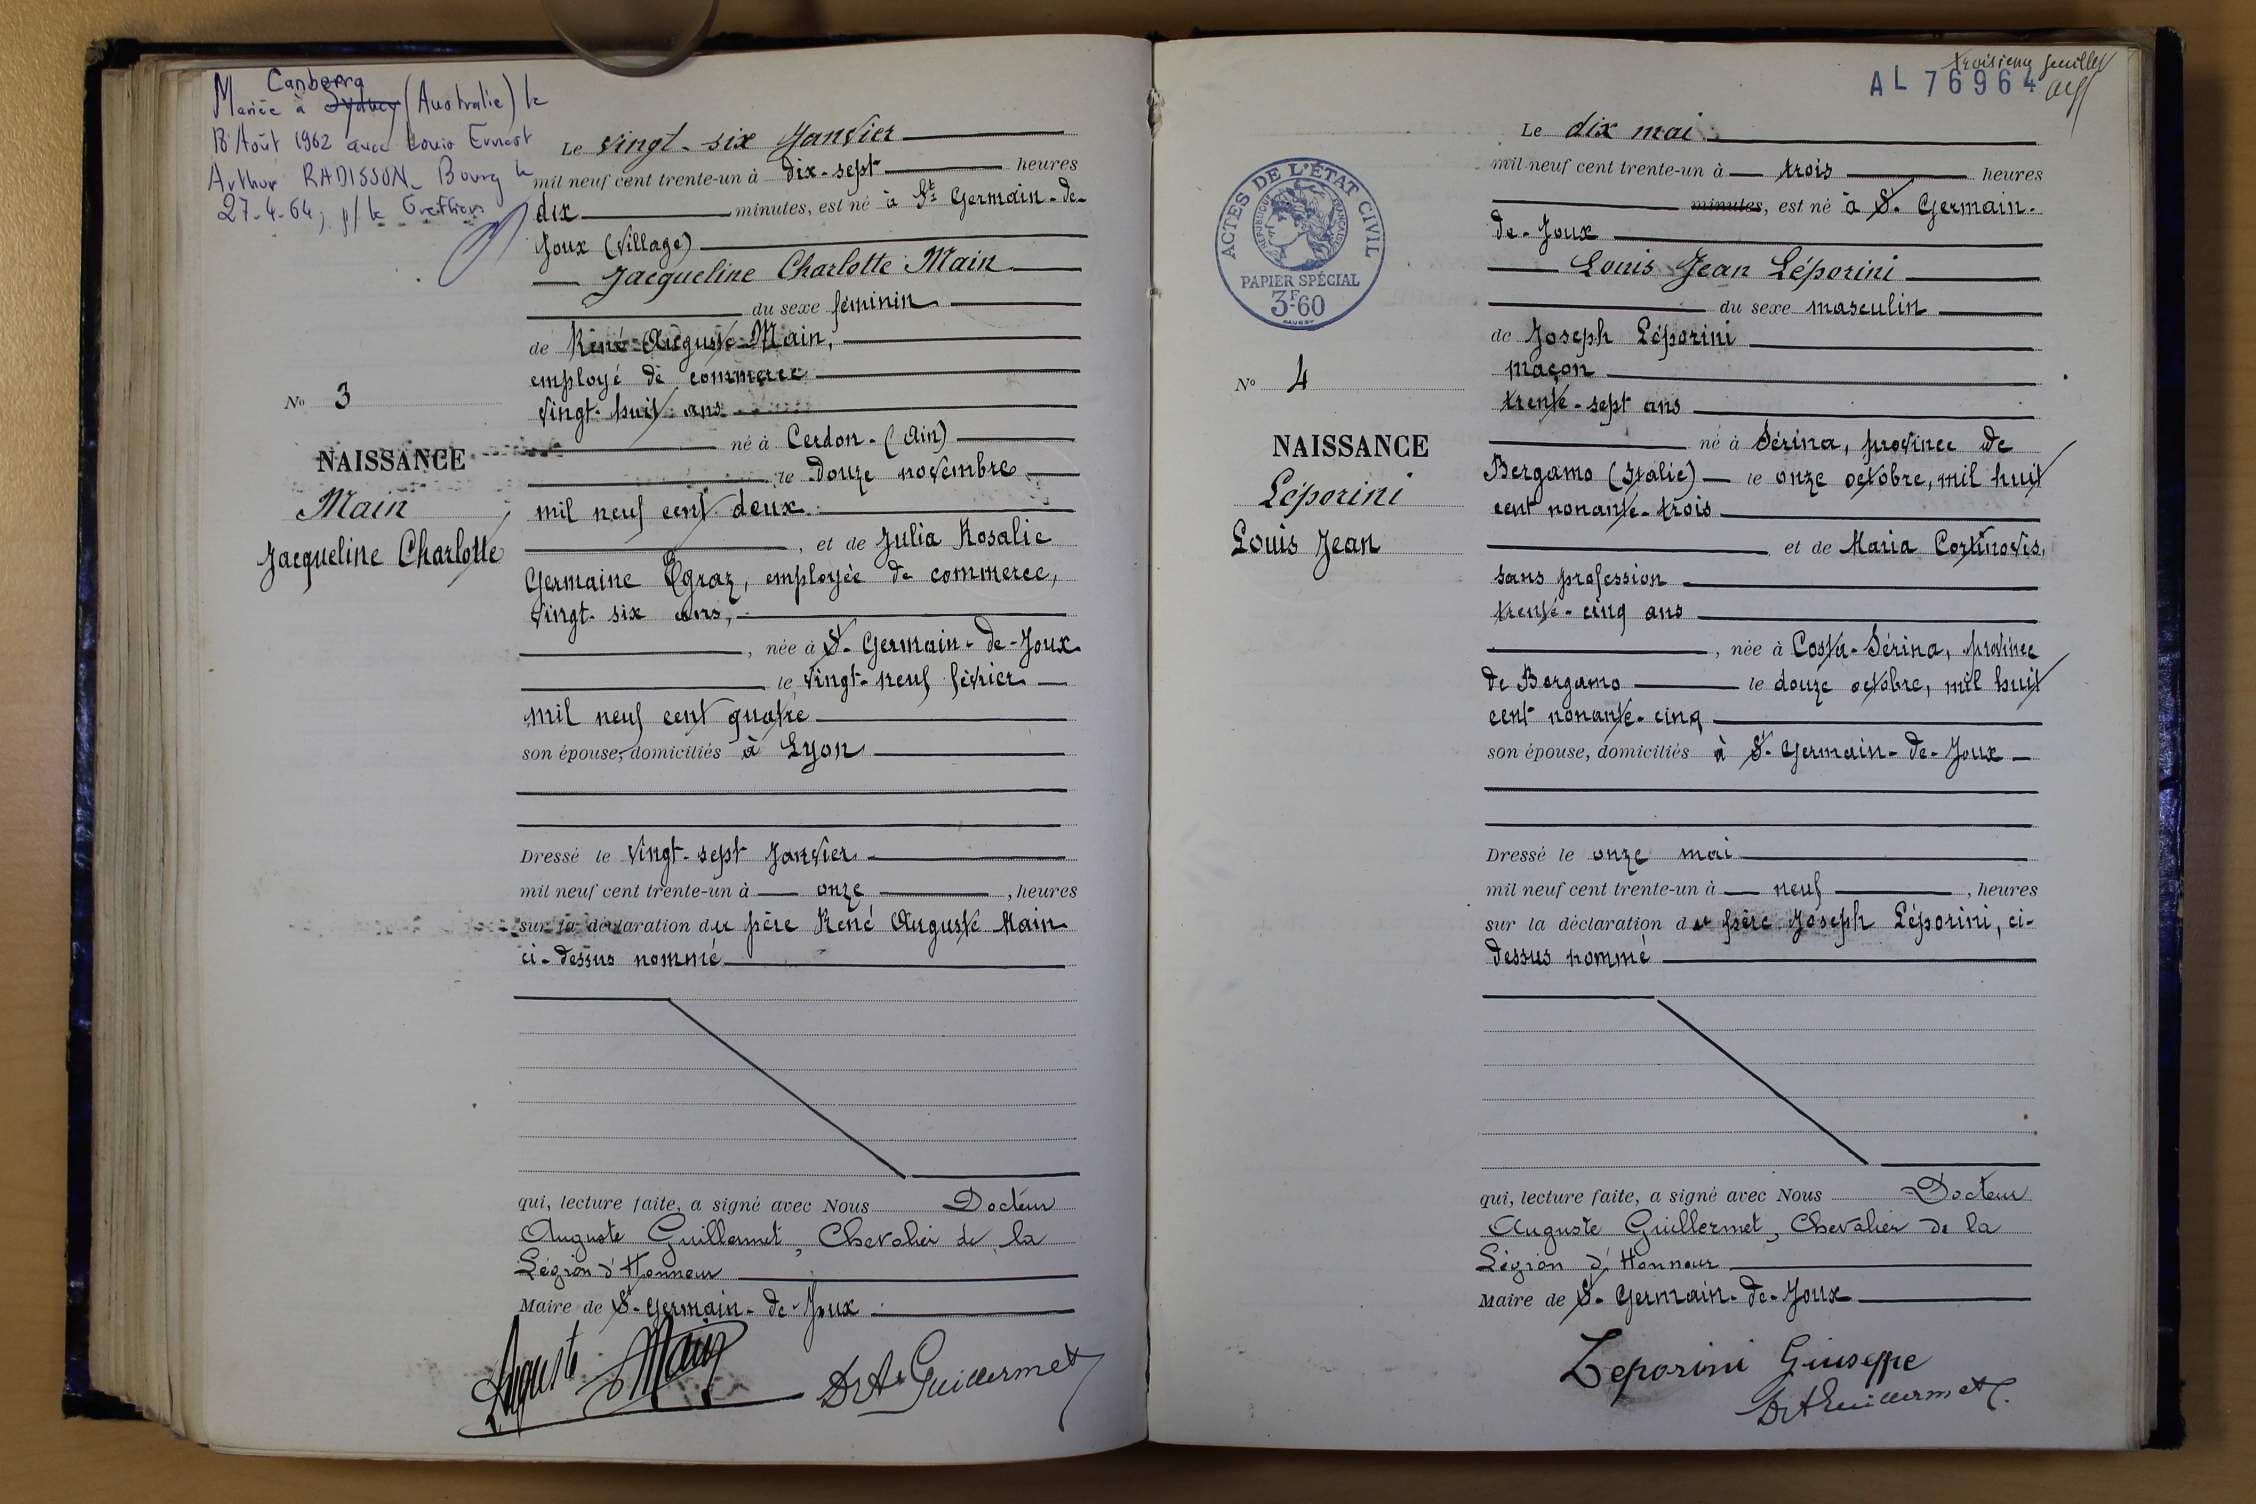 Canberra
Mariée à Sydney (Australie) le
18 Août 1962 avec Louis Ernest
Arthur RADISSON. Bourg le
27-4-64; p/ le Greffier
Le vingt-six Janvier
mil neuf cent trente-un à dix-sept heures
dix minutes, est né à St Germain-de-
Joux (Village)
Jacqueline Charlotte Main
du sexe féminin
de René Auguste Main,
employé de commerce
vingt-huit ans
né à Cerdon-(Ain)
le douze novembre
mil neuf cent deux
, et de Julia Rosalie
Germaine Egraz, employée de commerce,
vingt-six ans,
, née à St-Germain-de-Joux
le vingt-neuf février
mil neuf cent quatre
son épouse, domiciliés à Lyon
No 3
NAISSANCE
Main
Jacqueline Charlotte
Dressé le vingt-sept Janvier
mil neuf cent trente-un à onze , heures
sur la déclaration du père René Auguste Main
ci-dessus nommé
qui, lecture faite, a signé avec Nous Docteur
Auguste Guillermet, Chevalier de la
Légion d'Honneur
Maire de St-Germain-de-Joux
Auguste Main
Dr A. Guillermet
troisième feuillet
AL 76964
ACTES DE L'ÉTAT CIVIL
RÉPUBLIQUE FRANÇAISE
PAPIER SPÉCIAL
3F-60
Le dix mai
mil neuf cent trente-un à trois heures
minutes, est né à St-Germain-
de-Joux
Louis Jean Léporini
du sexe masculin
de Joseph Léporini
maçon
trente-sept ans
né à Sérina, province de
Bergamo (Italie) le onze octobre, mil huit
cent nonante-trois
et de Maria Cortinovis,
sans profession
trente-cinq ans
, née à Costa-Sérina, province
de Bergamo le douze octobre, mil huit
cent nonante-cinq
son épouse, domiciliés à St-Germain-de-Joux
No 4
NAISSANCE
Léporini
Louis Jean
Dressé le onze mai
mil neuf cent trente-un à neuf , heures
sur la déclaration du père Joseph Léporini, ci-
dessus nommé
qui, lecture faite, a signé avec Nous Docteur
Auguste Guillermet, Chevalier de la
Légion d'Honneur
Maire de St-Germain-de-Joux
Leporini Giuseppe
Dr A Guillermet